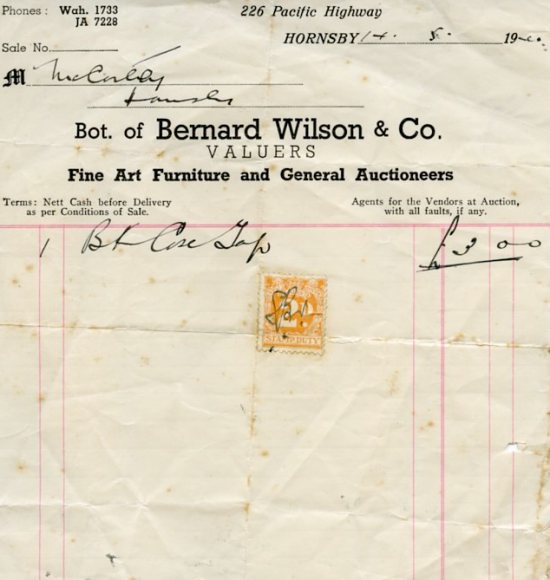 Phones : Wah. 1733
JA 7228
226 Pacific Highway
HORNSBY 14. 8. 19
Sale No.
M McCarthy
Hornsby
Bot. of Bernard Wilson & Co.
VALUERS
Fine Art Furniture and General Auctioneers
Terms: Nett Cash before Delivery
as per Conditions of Sale.
Agents for the Vendors at Auction,
with all faults, if any.
1 Bk Case Top £3 0 0
2D
STAMP DUTY